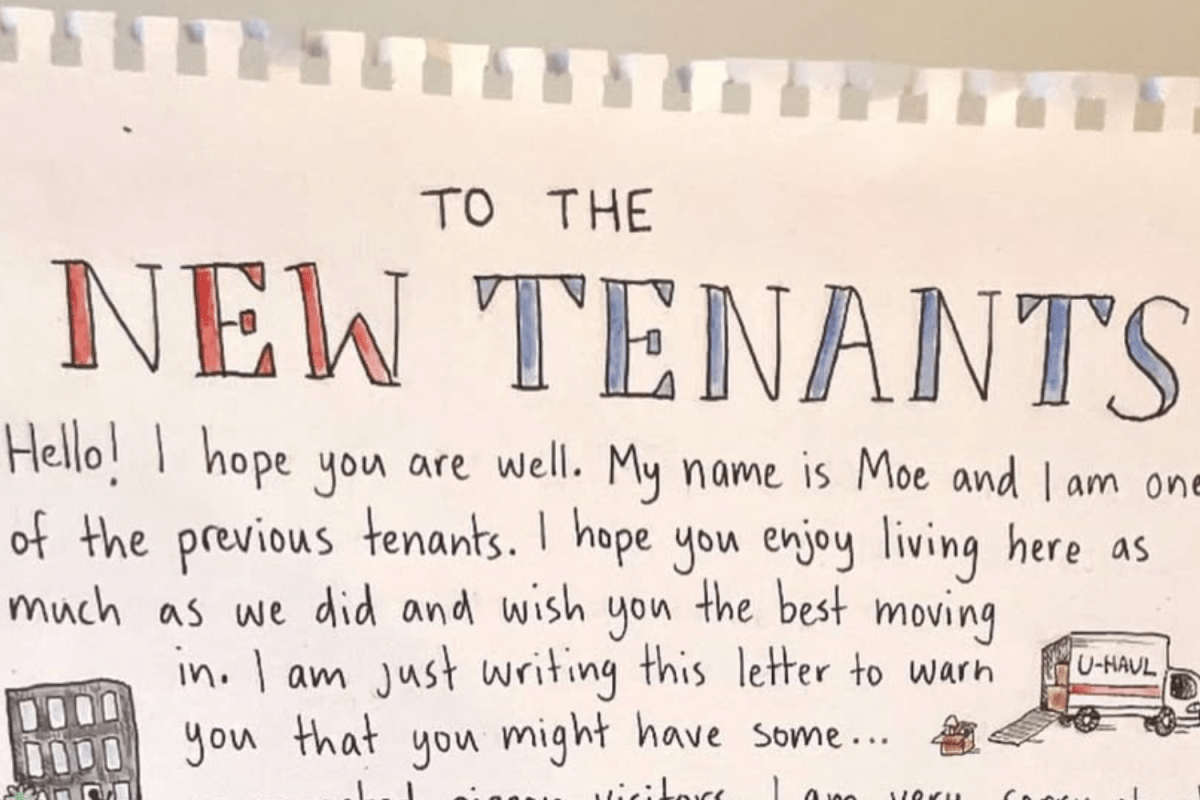 TO THE
NEW TENANTS
Hello! I hope you are well. My name is Moe and I am one
of the previous tenants. I hope you enjoy living here as
much as we did and wish you the best moving
in. I am just writing this letter to warn
you that you might have some...
U-HAUL
pigeon visitors. I am very sorry